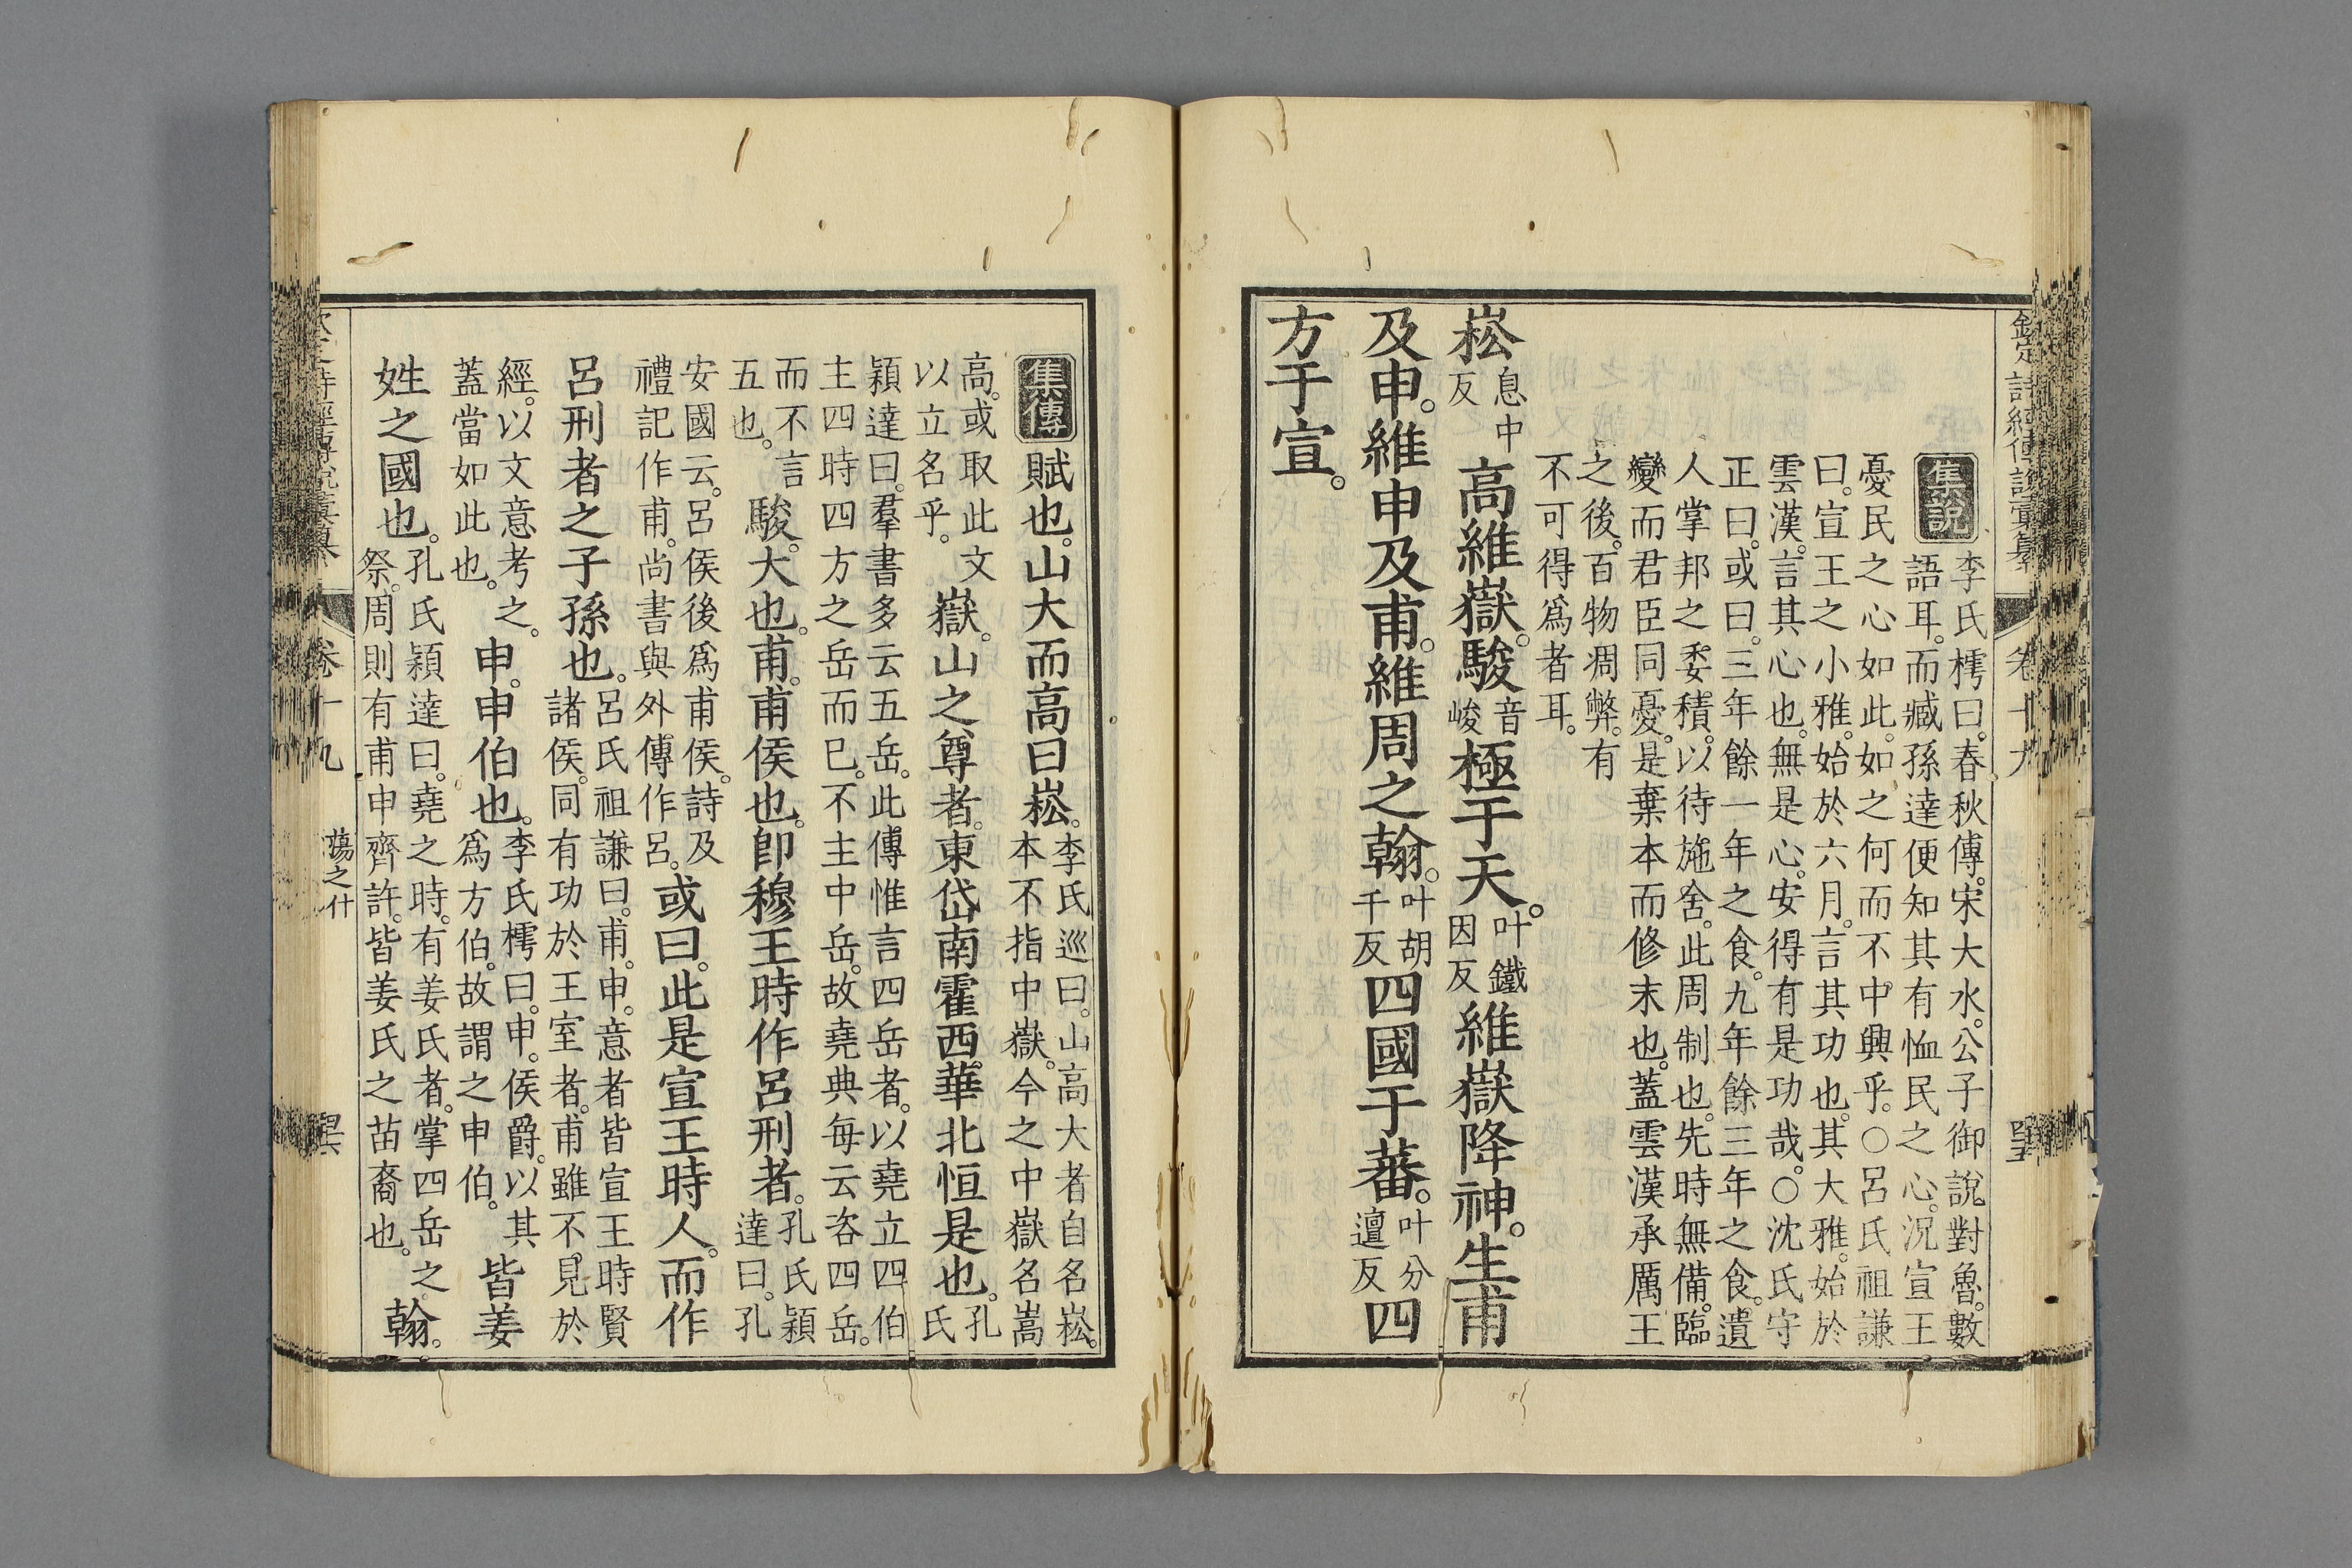 鈙定詩經傳說彙纂 卷十九
集說 李氏樗曰。春秋傳。宋大水。公子御說對魯。數
語耳。而臧孫達便知其有恤民之心。況宣王
憂民之心如此。如之何而不中興乎。○呂氏祖謙
曰。宣王之小雅。始於六月。言其功也。其大雅。始於
雲漢。言其心也。無是心。安得有是功哉。○沈氏守
正曰。或曰。三年餘一年之食。九年餘三年之食。遺
人掌邦之委積。以待施舍。此周制也。先時無備。臨
變而君臣同憂。是棄本而修末也。蓋雲漢承厲王
之後。百物凋弊。有
不可得爲者耳。
崧息中反高維嶽。駿音峻極于天。叶鐵因反維嶽降神。生甫
及申。維申及甫。維周之翰。叶胡千反四國于蕃。叶分邅反四
方于宣。
集傳 賦也。山大而高曰崧。李氏巡曰。山高大者自名崧。本不指中嶽。今之中嶽名嵩
高。或取此文以立名乎。嶽。山之尊者。東岱南霍西華北恒是也。孔氏
穎達曰。羣書多云五岳。此傳惟言四岳者。以堯立四伯
主四時四方之岳而已。不主中岳。故堯典每云咨四岳。
而不言五也。駿。大也。甫。甫侯也。卽穆王時作呂刑者。孔氏穎達曰。孔
安國云。呂侯後爲甫侯。詩及禮記作甫。尚書與外傳作呂。或曰。此是宣王時人。而作
呂刑者之子孫也。呂氏祖謙曰。甫。申。意者皆宣王時賢諸侯。同有功於王室者。甫雖不見於
經。以文意考之。蓋當如此也。申。申伯也。李氏樗曰。申。侯爵。以其爲方伯。故謂之申伯。皆姜
姓之國也。孔氏穎達曰。堯之時。有姜氏者。掌四岳之祭。周則有甫申齊許。皆姜氏之苗裔也。翰。
詩經傳說彙纂 卷十九 蕩之什